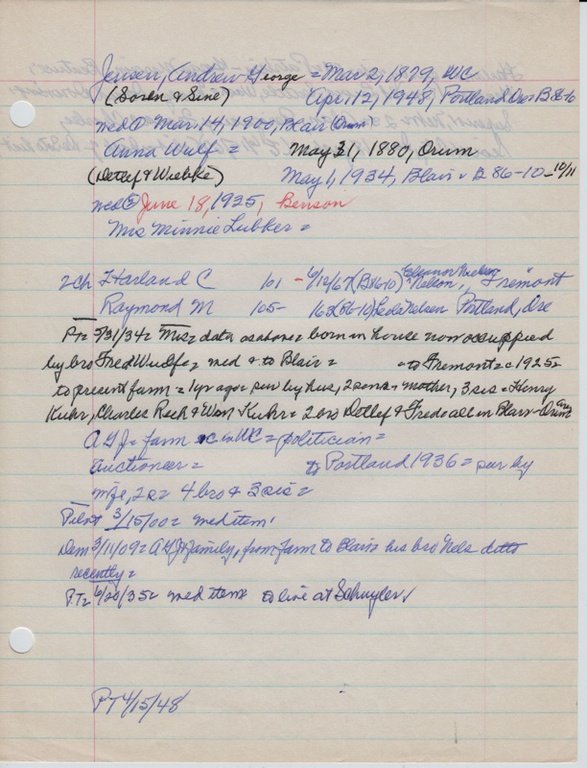 Jensen, Andrew George = Mar 2, 1879, WC
(Soren & Sine) Apr. 12, 1948, Portland Ore = B 86-10
med ① Mar. 14, 1900, Blair (Orum)
Anna Wulf = May 31, 1880, Orum
(Detlef & Wiebke) May 1, 1934, Blair = B 86-10 - 10/11
med ② June 18, 1935, Benson
Mrs Minnie Lubker =
2 Ch Harland C 101 - 4/12/67 (B86-10) Eleanor Nelson, Fremont
Raymond M 105- 162 (86-10) Leola Nelsen Portland, Ore
PT = 5/31/34 = Mrs = data as above = born in house now occuppied
by bro Fred Wulf = med & to Blair = to Fremont = c 1925 =
to present farm = 1 yr ago = sur by hus, 2 sons, mother, 3 sis = Henry
Kuhr, Charles Rech & Wm Kuhr = 2 bro Detlef & Fred = all in Blair-Orum
AGJ = farm = C in WC = politician =
auctioneer = to Portland 1936 = sur by
wife, 2 s = 4 bro & 3 sis =
Pilot 3/15/00 = med item
Dem 3/11/09 = AGJ & family, from farm to Blair = his bro Nels ditto
recently =
PT = 6/20/35 = med item to live at Schuyler
PT 4/15/48